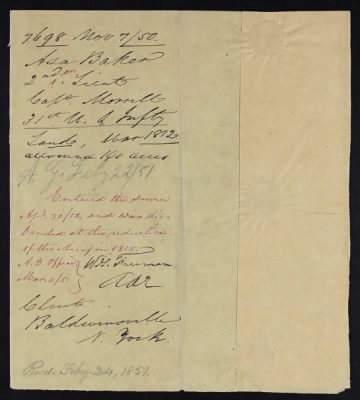 7698 Nov 7/50.
Asa Baker
2nd Lieut
Capt. Morrill
31st U.S. Infty
Land, War 1812
allowed 160 acres
A.G. Feby 22/51
Entered the service
Apl. 30/13, and was dis-
banded at the reduction
of the Army in 1815.
A.G. Office W.G. Freeman
Mar. 4/51
Clint
Baldwinsville
N. York.
Recd. Feby. 24, 1851.